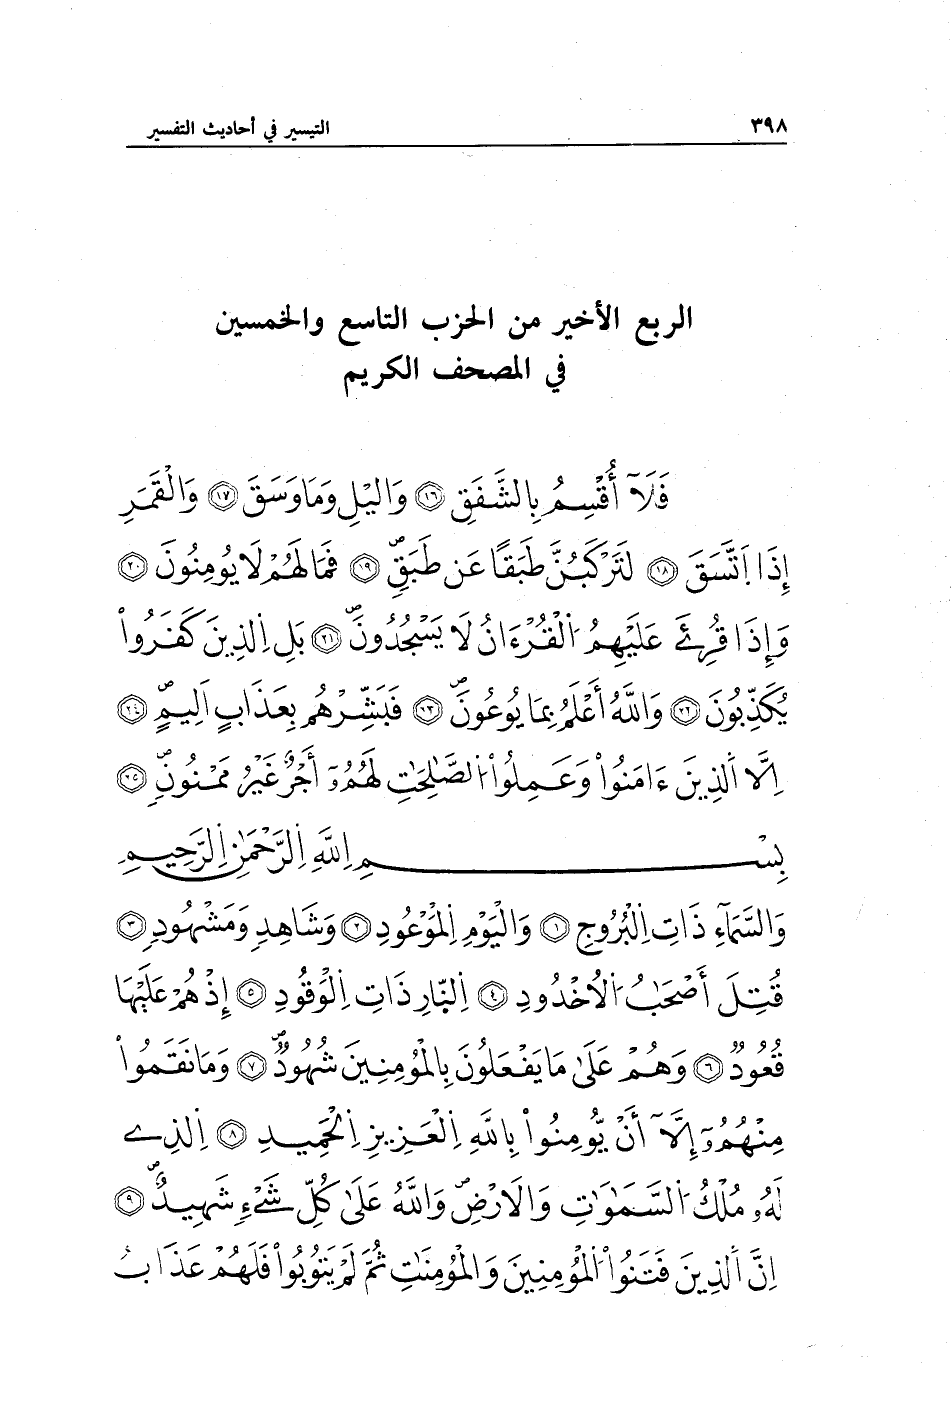 ٣٩٨ التيسير في أحاديث التفسير
الربع الأخير من الحزب التاسع والخمسين
في المصحف الكريم
فَلَآ أُقْسِمُ بِالشَّفَقِ ١٦ وَاليْلِ وَمَا وَسَقَ ١٧ وَالْقَمَرِ
إِذَا اَتَّسَقَ ١٨ لَتَرْكَبُنَّ طَبَقًا عَن طَبَقٍ ١٩ فَمَا لَهُمْ لَا يُومِنُونَ ٢٠
وَإِذَا قُرِئَ عَلَيْهِمُ اُلْقُرْءَانُ لَا يَسْجُدُونَ ٢١ بَلِ اِلذِينَ كَفَرُواْ
يُكَذِّبُونَ ٢٢ وَاللَّهُ أَعْلَمُ بِمَا يُوعُونَ ٢٣ فَبَشِّرْهُم بِعَذَابٍ اَلِيمٍ ٢٤
اِلَّا اَلذِينَ ءَامَنُواْ وَعَمِلُواْ اُلصَّٰلِحَٰتِ لَهُمُۥٓ أَجْرٌ غَيْرُ مَمْنُونٍ ٢٥
بِسْمِ اِللَّهِ اِلرَّحْمَٰنِ اِلرَّحِيمِ
وَالسَّمَآءِ ذَاتِ اِلْبُرُوجِ ١ وَالْيَوْمِ اِلْمَوْعُودِ ٢ وَشَاهِدٍ وَمَشْهُودٍ ٣
قُتِلَ أَصْحَٰبُ اُلُاخْدُودِ ٤ اِلنَّارِ ذَاتِ اِلْوَقُودِ ٥ إِذْ هُمْ عَلَيْهَا
قُعُودٌ ٦ وَهُمْ عَلَىٰ مَا يَفْعَلُونَ بِالْمُؤْمِنِينَ شُهُودٌ ٧ وَمَا نَقَمُواْ
مِنْهُمُۥٓ إِلَّآ أَنْ يُّومِنُواْ بِاللَّهِ اِلْعَزِيزِ اِلْحَمِيدِ ٨ اِلذِے
لَهُۥ مُلْكُ اُلسَّمَٰوَٰتِ وَالَارْضِ وَاللَّهُ عَلَىٰ كُلِّ شَےْءٍ شَهِيدٌ ٩
اِنَّ اَلذِينَ فَتَنُواْ اُلْمُؤْمِنِينَ وَالْمُؤْمِنَٰتِ ثُمَّ لَمْ يَتُوبُواْ فَلَهُمْ عَذَابُ